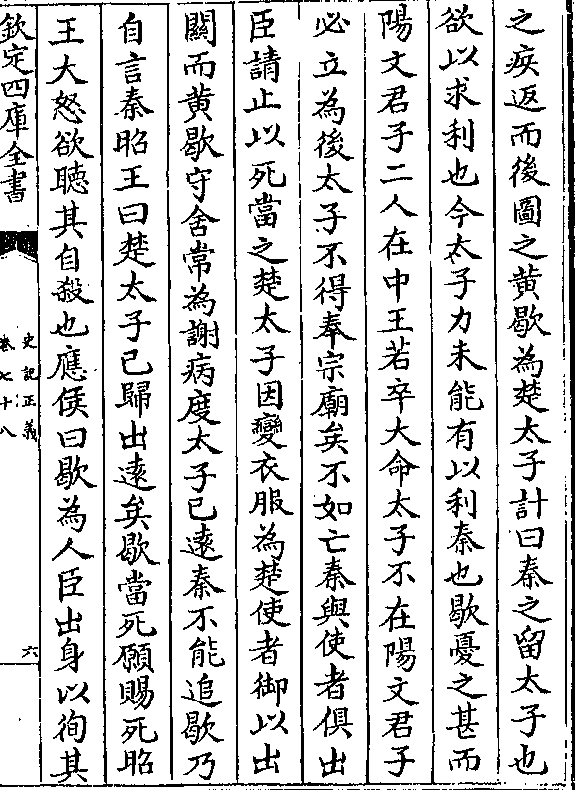 之疾返而後圖之黄歇為楚太子計曰秦之留太子也
欲以求利也今太子力未能有以利秦也歇憂之甚而
陽文君子二人在中王若卒大命太子不在陽文君子
必立為後太子不得奉宗廟矣不如亡秦與使者俱出
臣請止以死當之楚太子因變衣服為楚使者御以出
關而黄歇守舍常為謝病度太子已遠秦不能追歇乃
自言秦昭王曰楚太子已歸出遠矣歇當死願賜死昭
王大怒欲聽其自殺也應侯曰歇為人臣出身以徇其
欽定四庫全書
史記正義
卷七十八
六